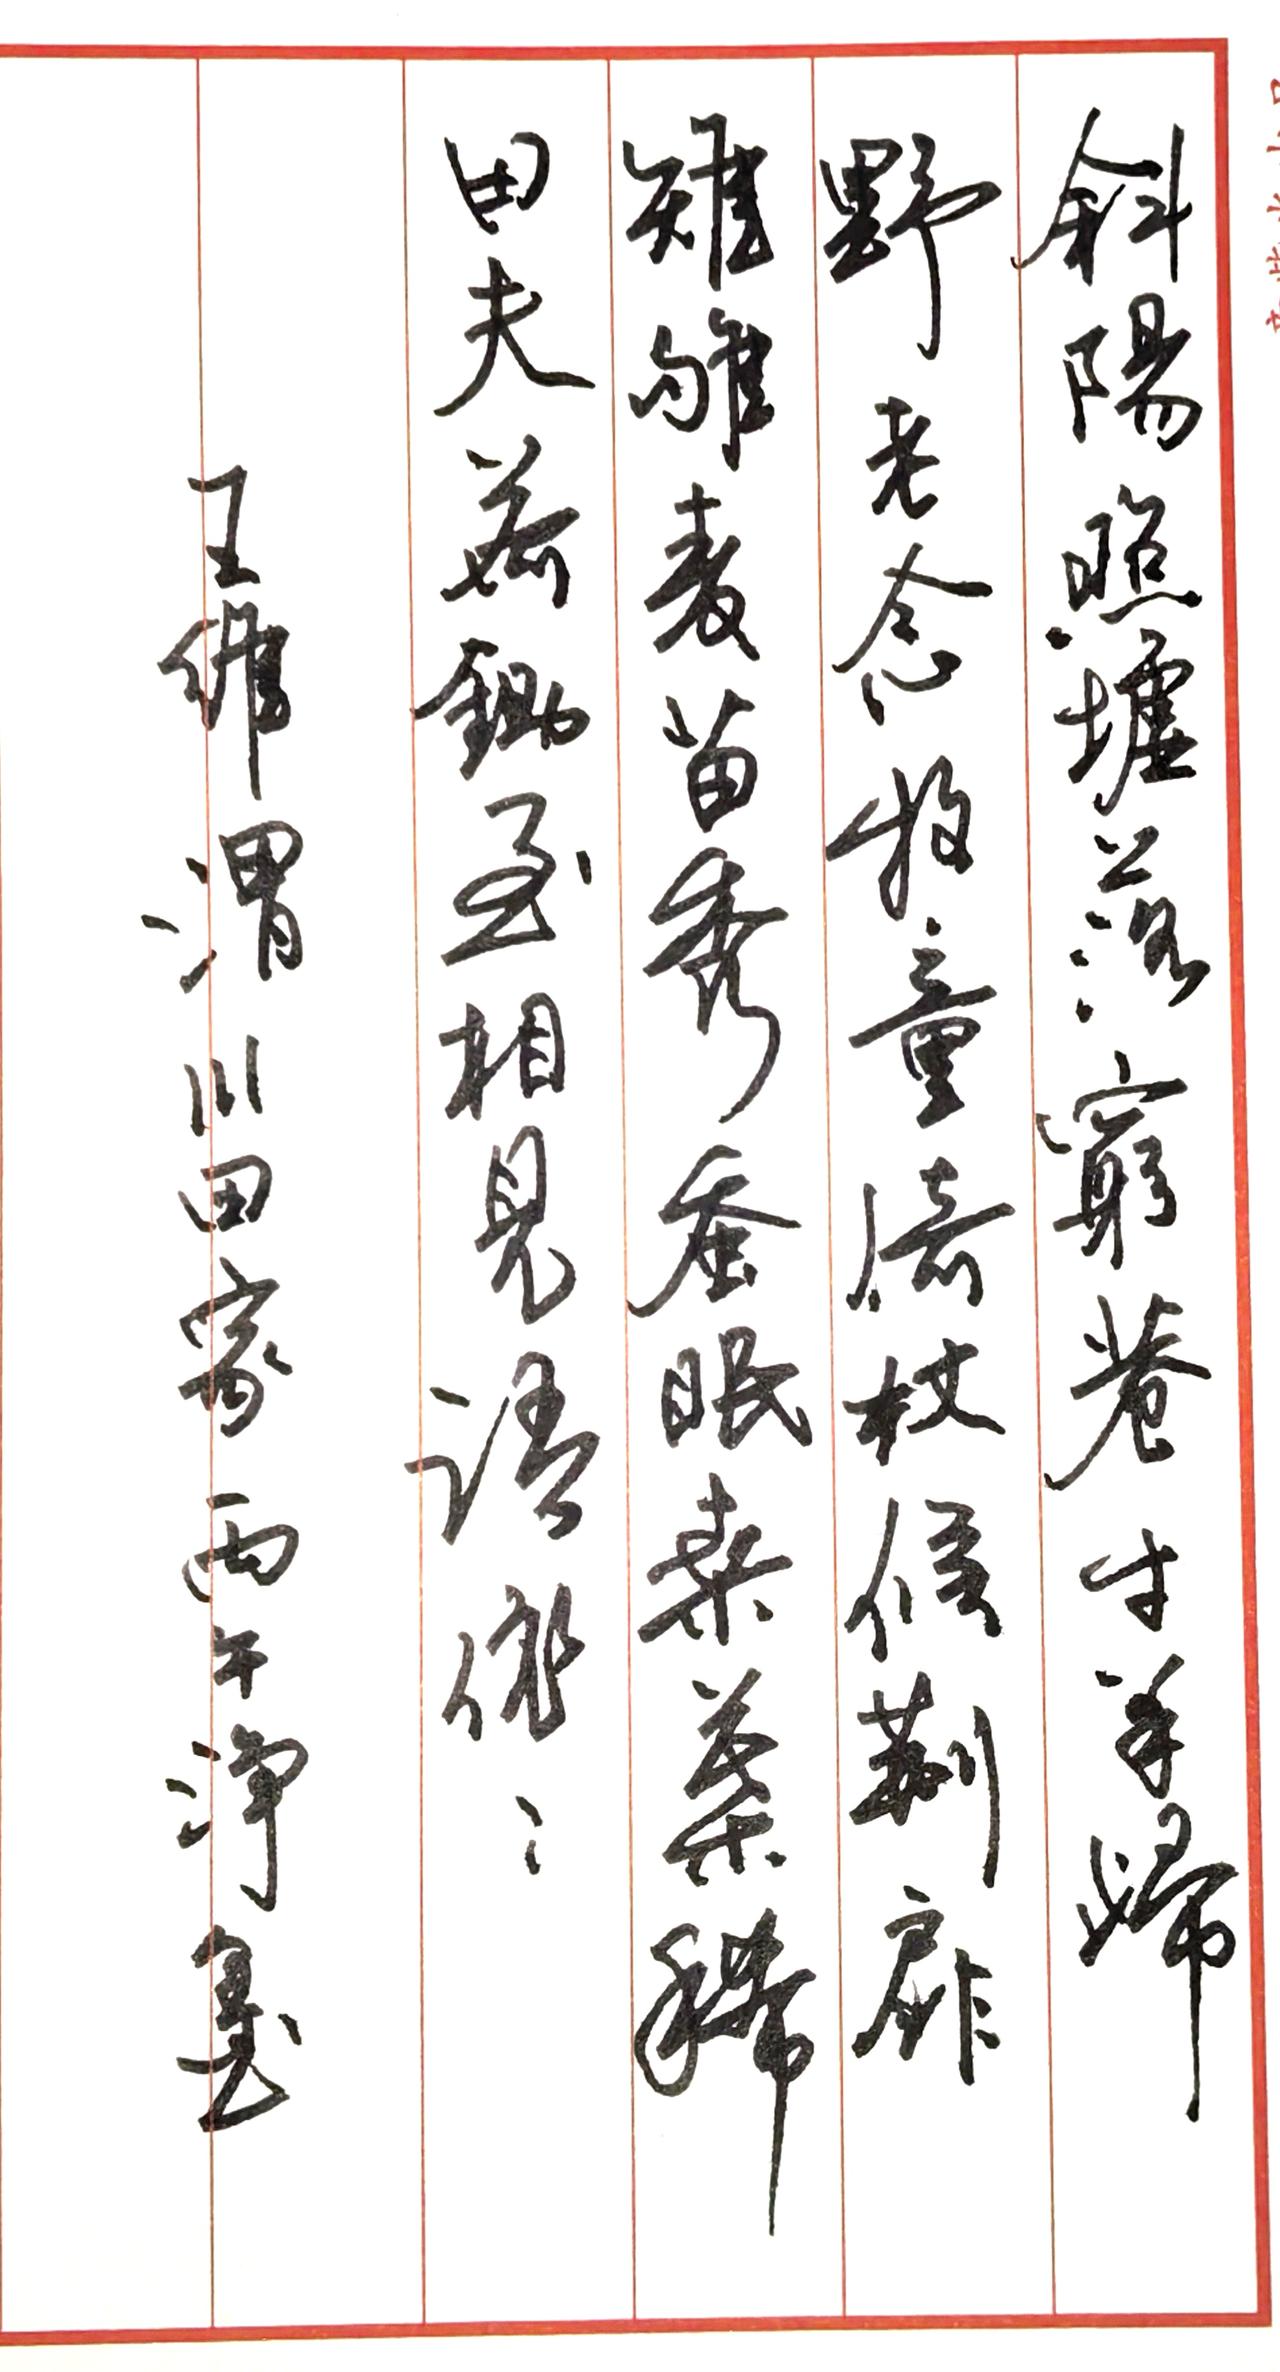 斜陽照墟落窮巷牛羊歸
野老念牧童倚杖候荊扉
雉雊麥苗秀蚕眠桑葉稀
田夫荷鋤至相見語依〻
王維渭川田家 丙午淨